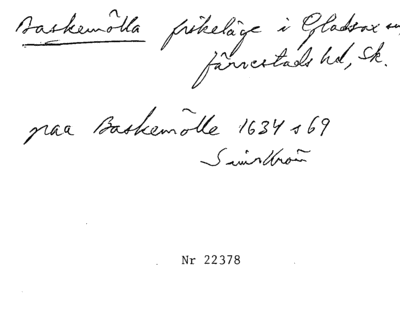 Baskemölla fiskeläge i Gladsax sn,
Järrestads hd, Sk.
paa Baskemölle 1634 s 69
Nr 22378